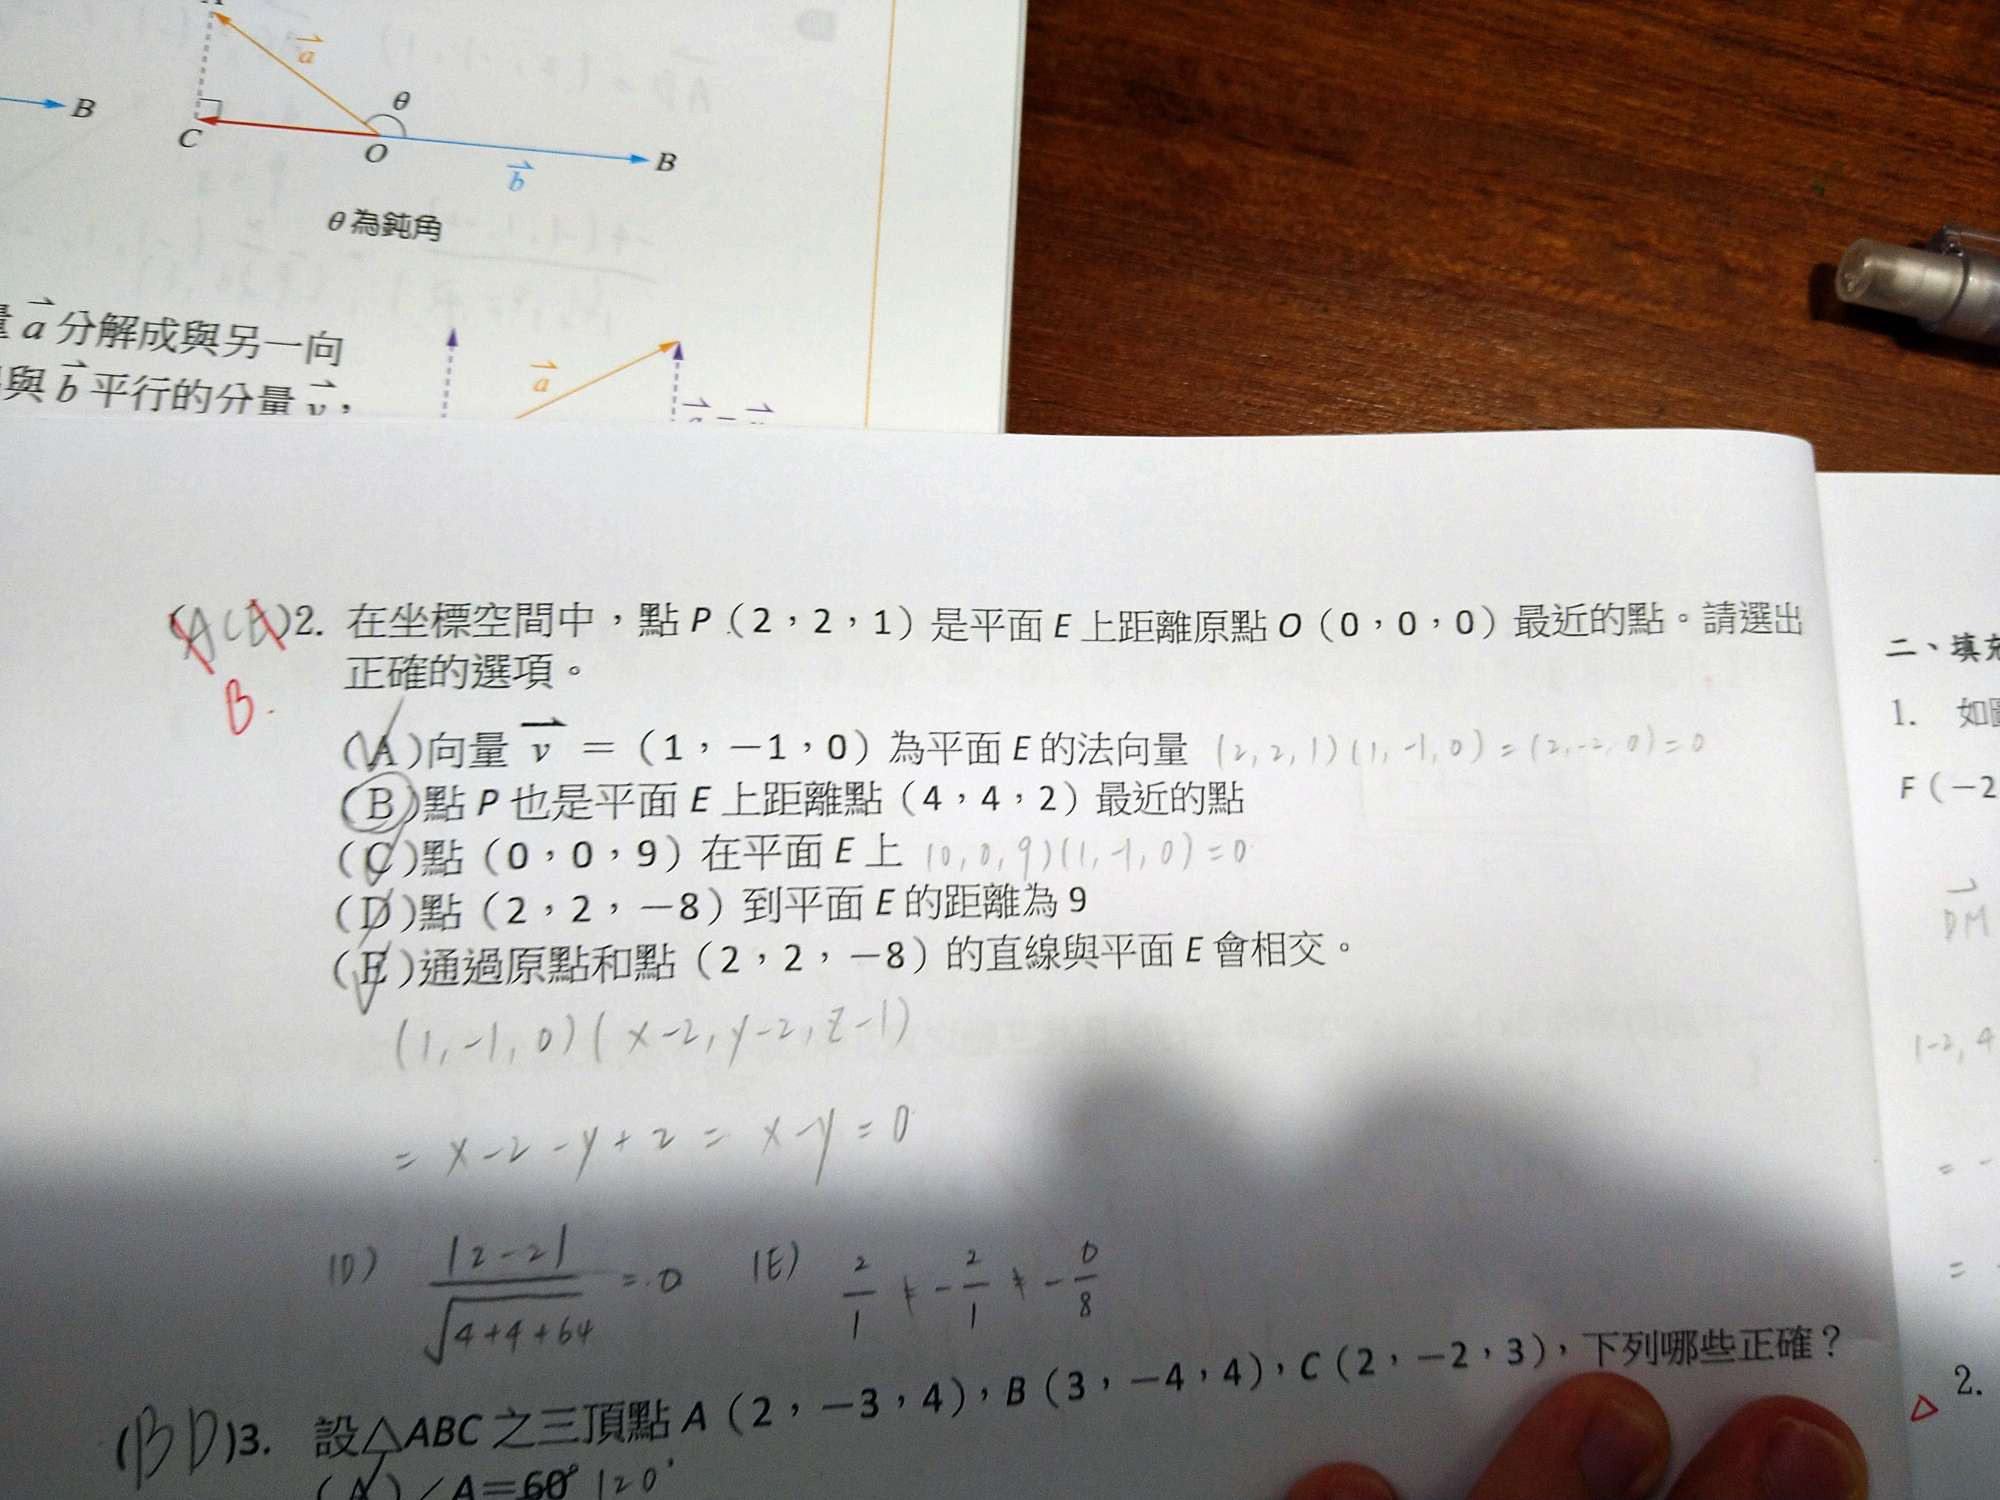 A
a
θ
B
C
O
b
B
θ為鈍角
量 a 分解成與另一向
與 b 平行的分量 v，
a
(A C E)2. 在坐標空間中，點 P（2，2，1）是平面 E 上距離原點 O（0，0，0）最近的點。請選出
正確的選項。
B.
(A)向量 v ＝（1，－1，0）為平面 E 的法向量 (2, 2, 1)(1, -1, 0) = (2, -2, 0) = 0
(B)點 P 也是平面 E 上距離點（4，4，2）最近的點
(C)點（0，0，9）在平面 E 上 (0, 0, 9)(1, -1, 0) = 0
(D)點（2，2，－8）到平面 E 的距離為 9
(E)通過原點和點（2，2，－8）的直線與平面 E 會相交。
(1, -1, 0)(x-2, y-2, z-1)
= x-2-y+2 = x-y = 0
(D) |2-2| / √4+4+64 = 0 (E) 2/1 ≠ -2/1 ≠ -0/8
(BD)3. 設△ABC 之三頂點 A（2，－3，4），B（3，－4，4），C（2，－2，3），下列哪些正確？
(A)∠A＝60° 120°
二、填充
1. 如圖
F（－2
DM
1-2, 4
= -
=
2.